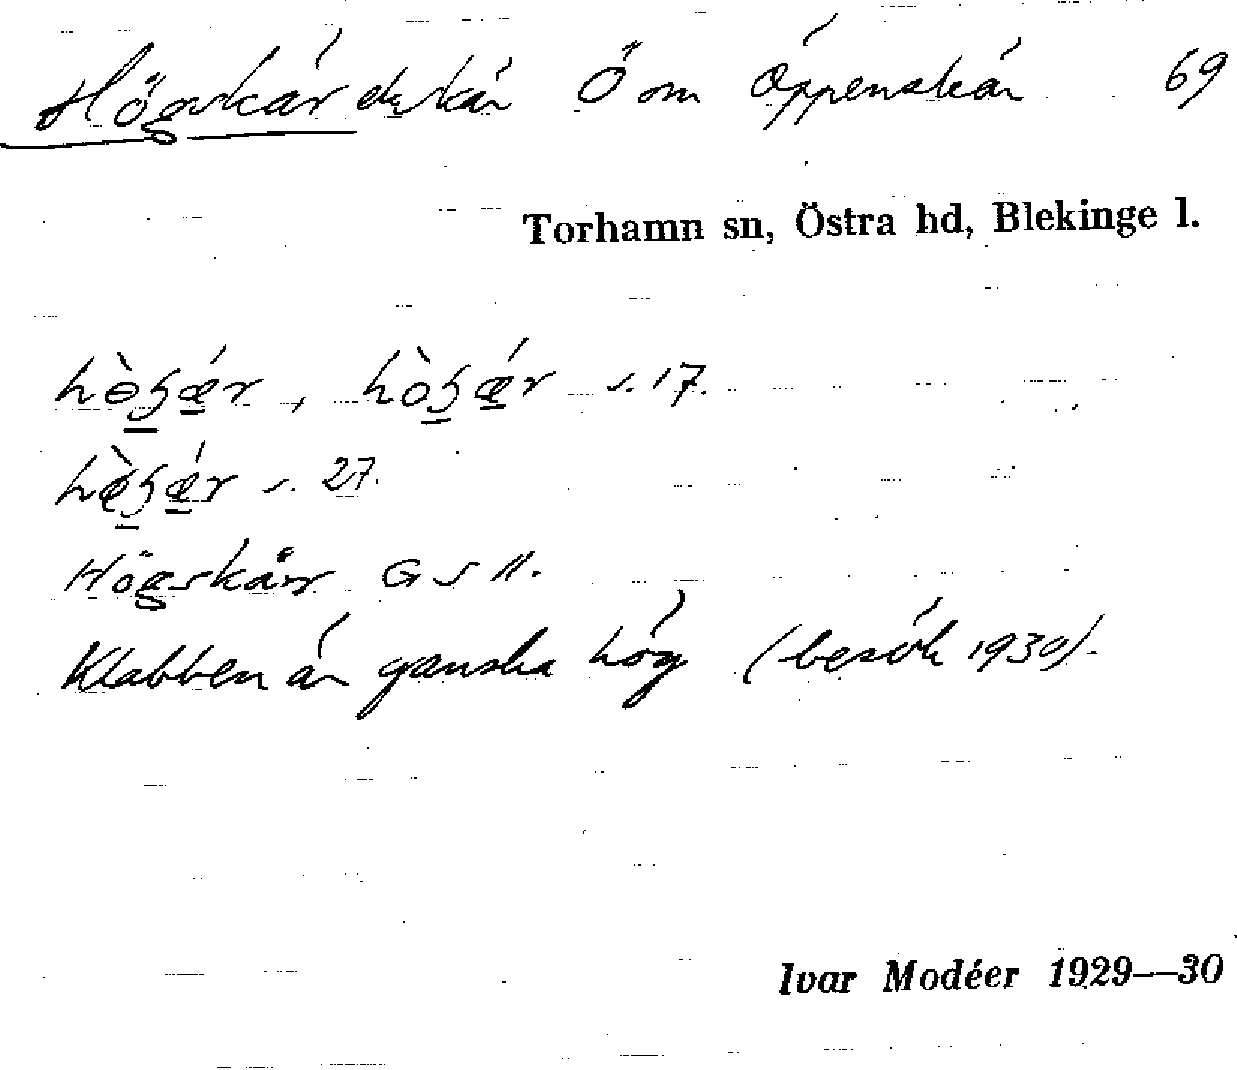 Högskär skär Ö om Öppenskär 69
Torhamn sn, Östra hd, Blekinge l.
s. 17.
s. 27.
Högskärr G S 11.
Klabben är ganska hög (besök 1930).
Ivar Modéer 1929—30